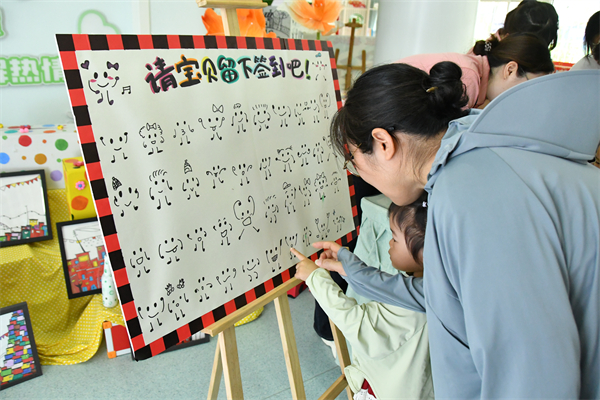 请宝贝留下签到吧！